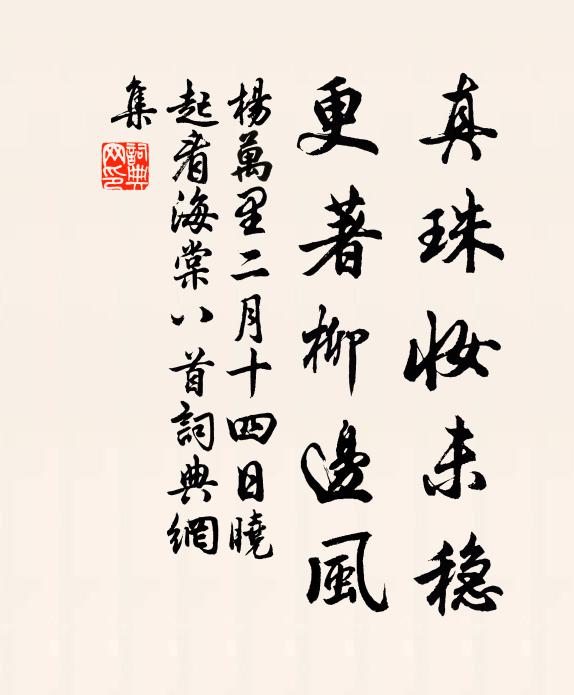 真珠妆未稳
更著柳邊風
楊萬里二月十四日曉
起看海棠八首詞典網
集
詞典
网印